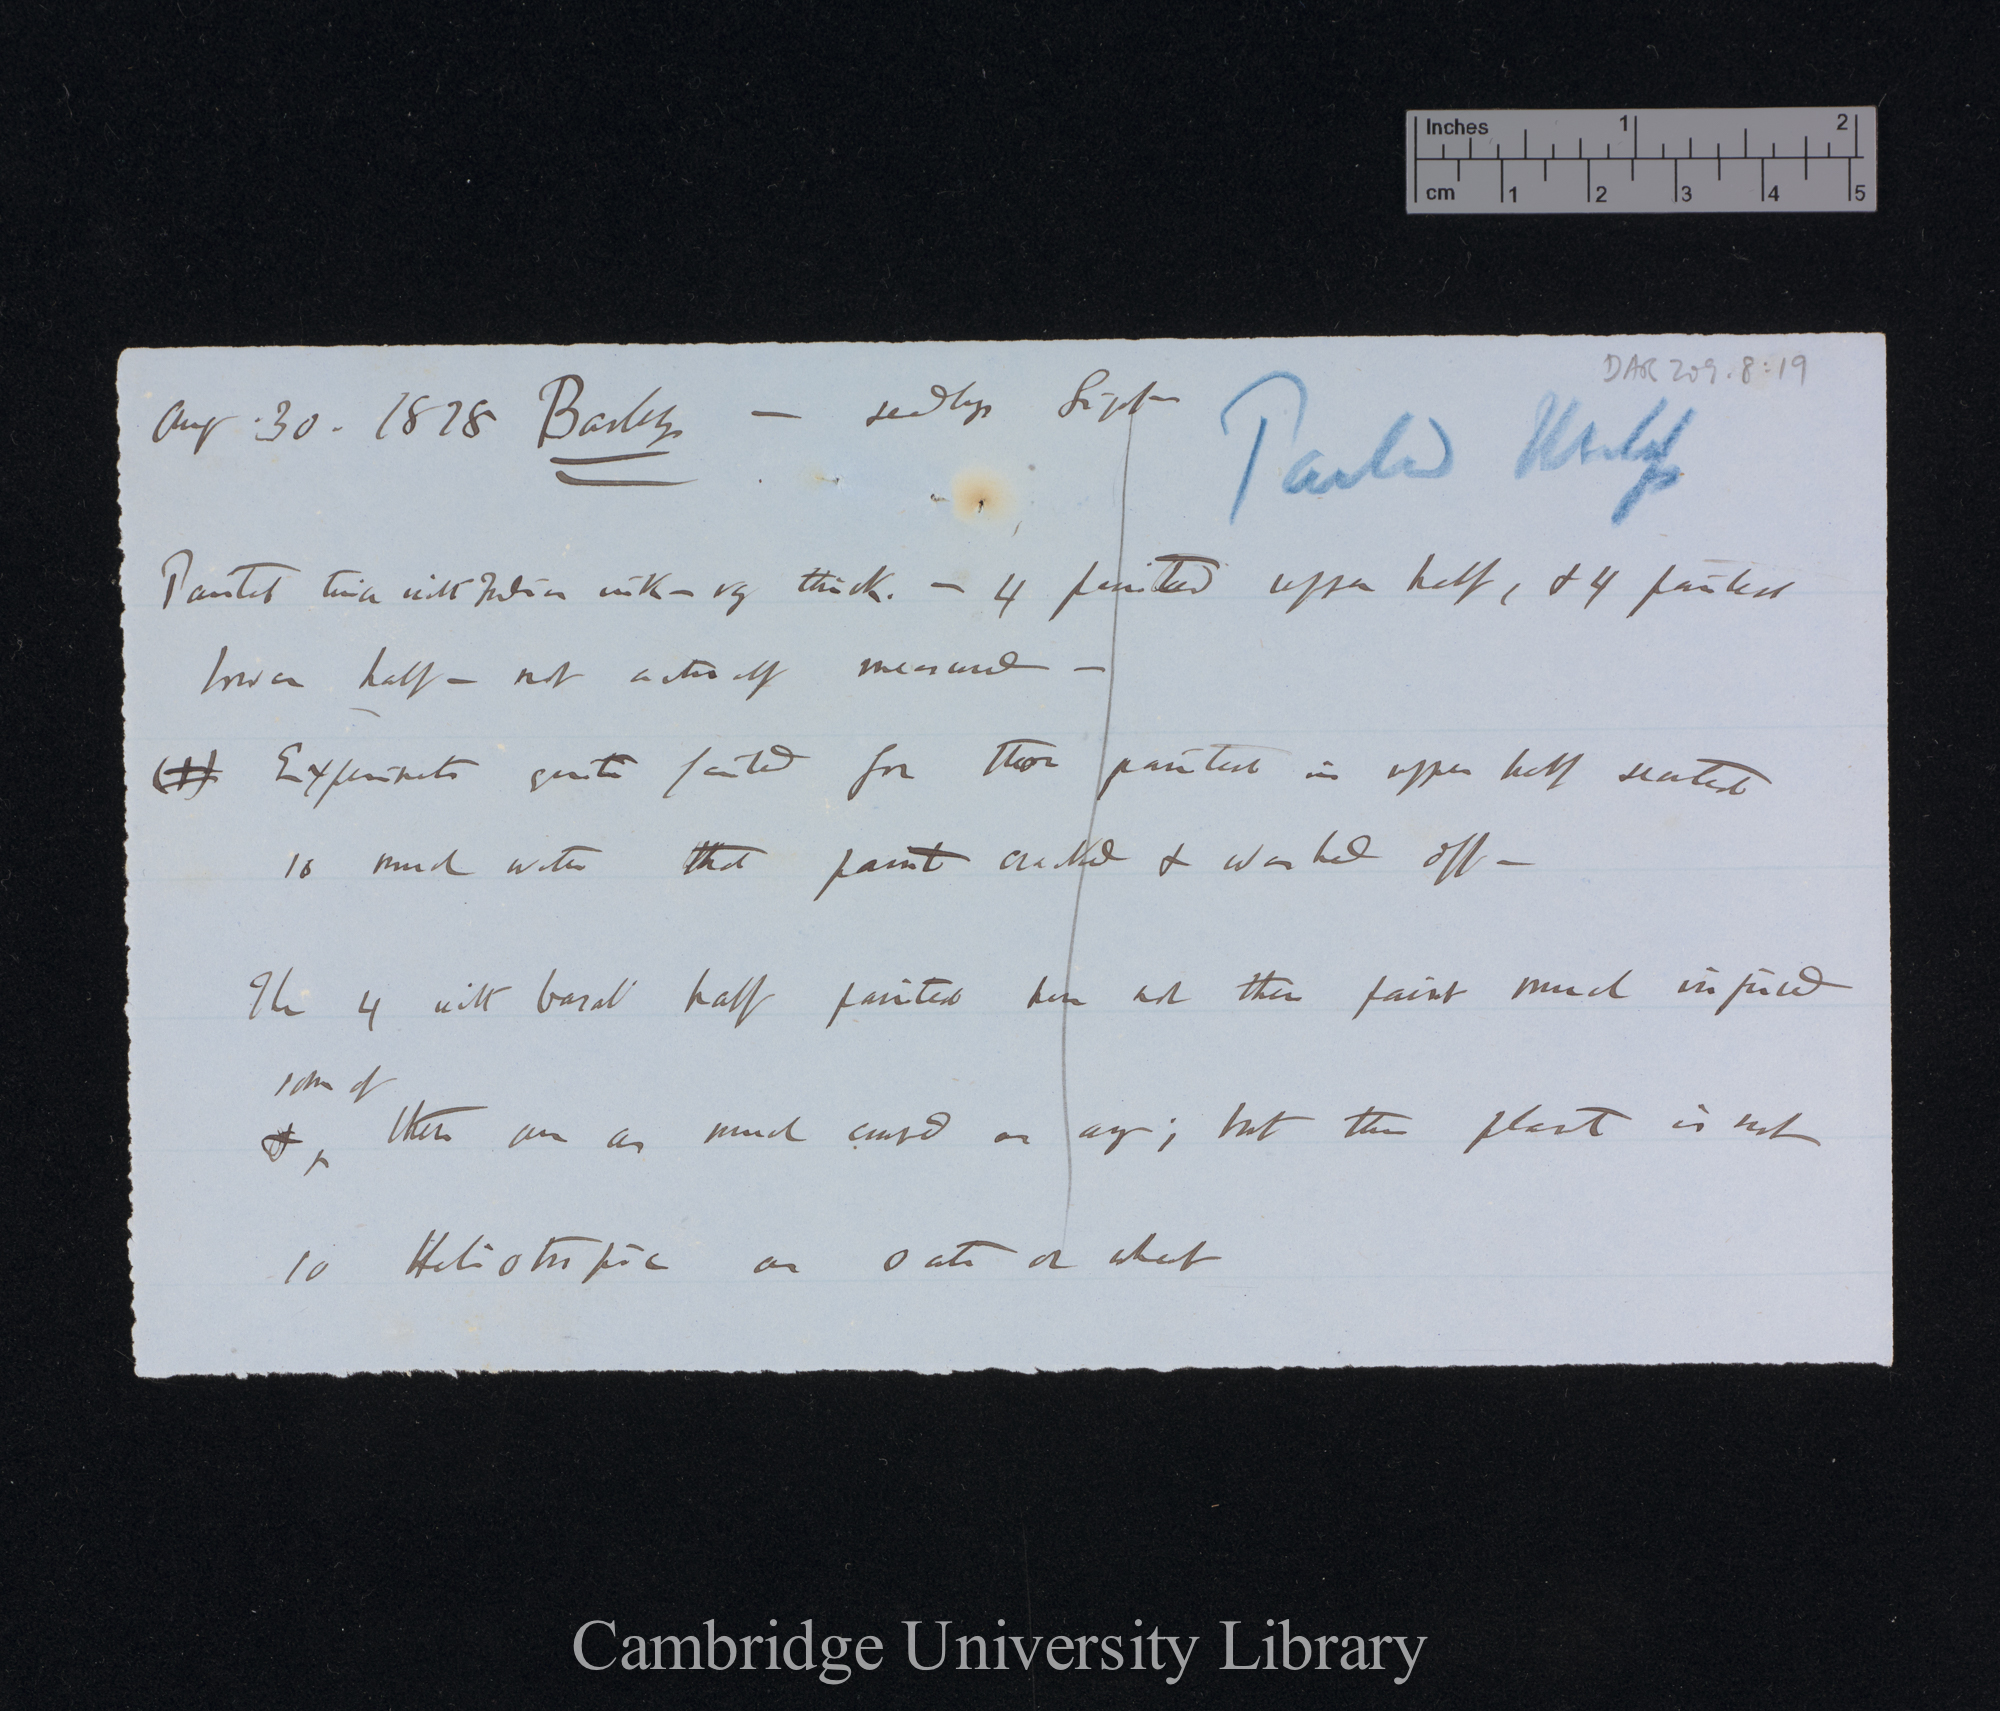 Inches 1 2
cm 1 2 3 4 5
DAR 209.8:19
Aug. 30. 1878 Barley — seedlings
Painted
Painted twice with Indian ink — very thick. — 4 painted upper half, & 4 painted
lower half — not actually measured —
Experiments quite failed for those painted in upper half secreted
so much water that paint cracked & washed off —
The 4 with basal half painted have not their paint much injured
some of
& these are as much curved as any; but this plant is not
so Heliotropic as oats or wheat
Cambridge University Library